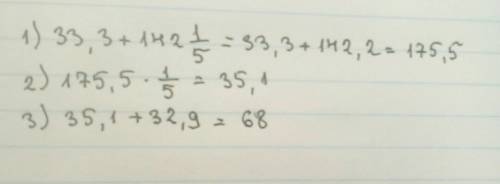 1) 33,3 + 142 1/5 = 33,3 + 142,2 = 175,5
2) 175,5 · 1/5 = 35,1
3) 35,1 + 32,9 = 68